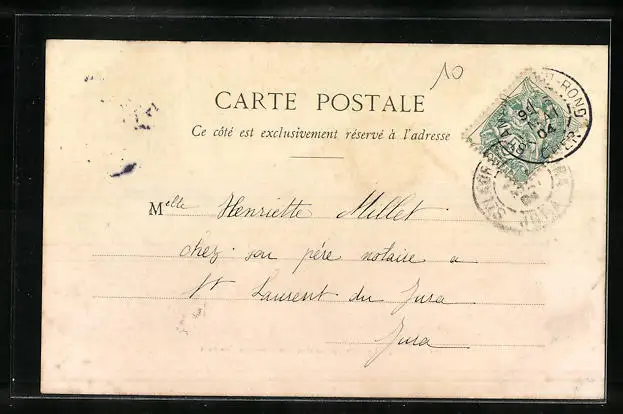 10
CARTE POSTALE
Ce côté est exclusivement réservé à l'adresse
Melle Henriette Millet
chez son père notaire a
St Laurent du Jura
Jura
ROND
CHER
04
JURA